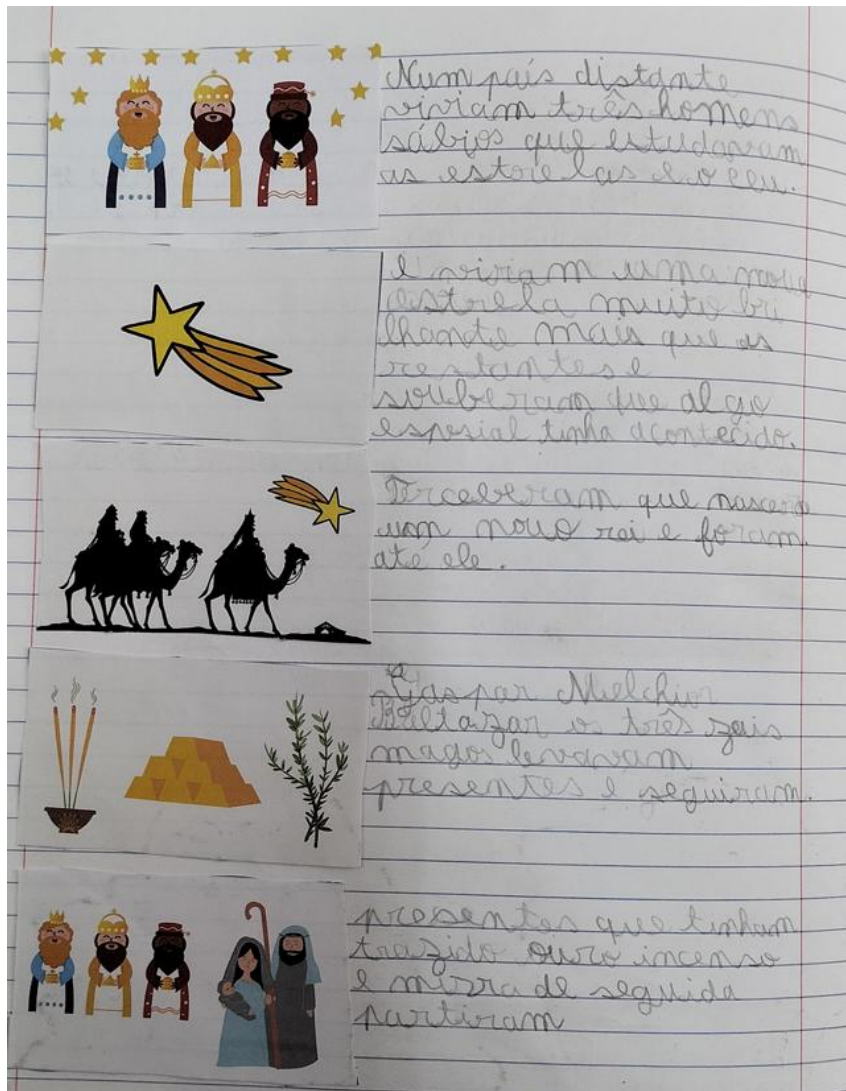 Num país distante
viviam três homens
sábios que estudavam
as estrelas e o ceu.
e viviam uma nova
estrela muito bri
lhante mais que as
restantes e
souberam que algo
espesial tinha acontecido.
Perceberam que nascera
um novo rei e foram
até ele.
Gaspar Melchior
Baltazar os três
magos levavam
presentes e seguiram.
presentes que tinham
trazido ouro incenso
e mirra de seguida
partiram